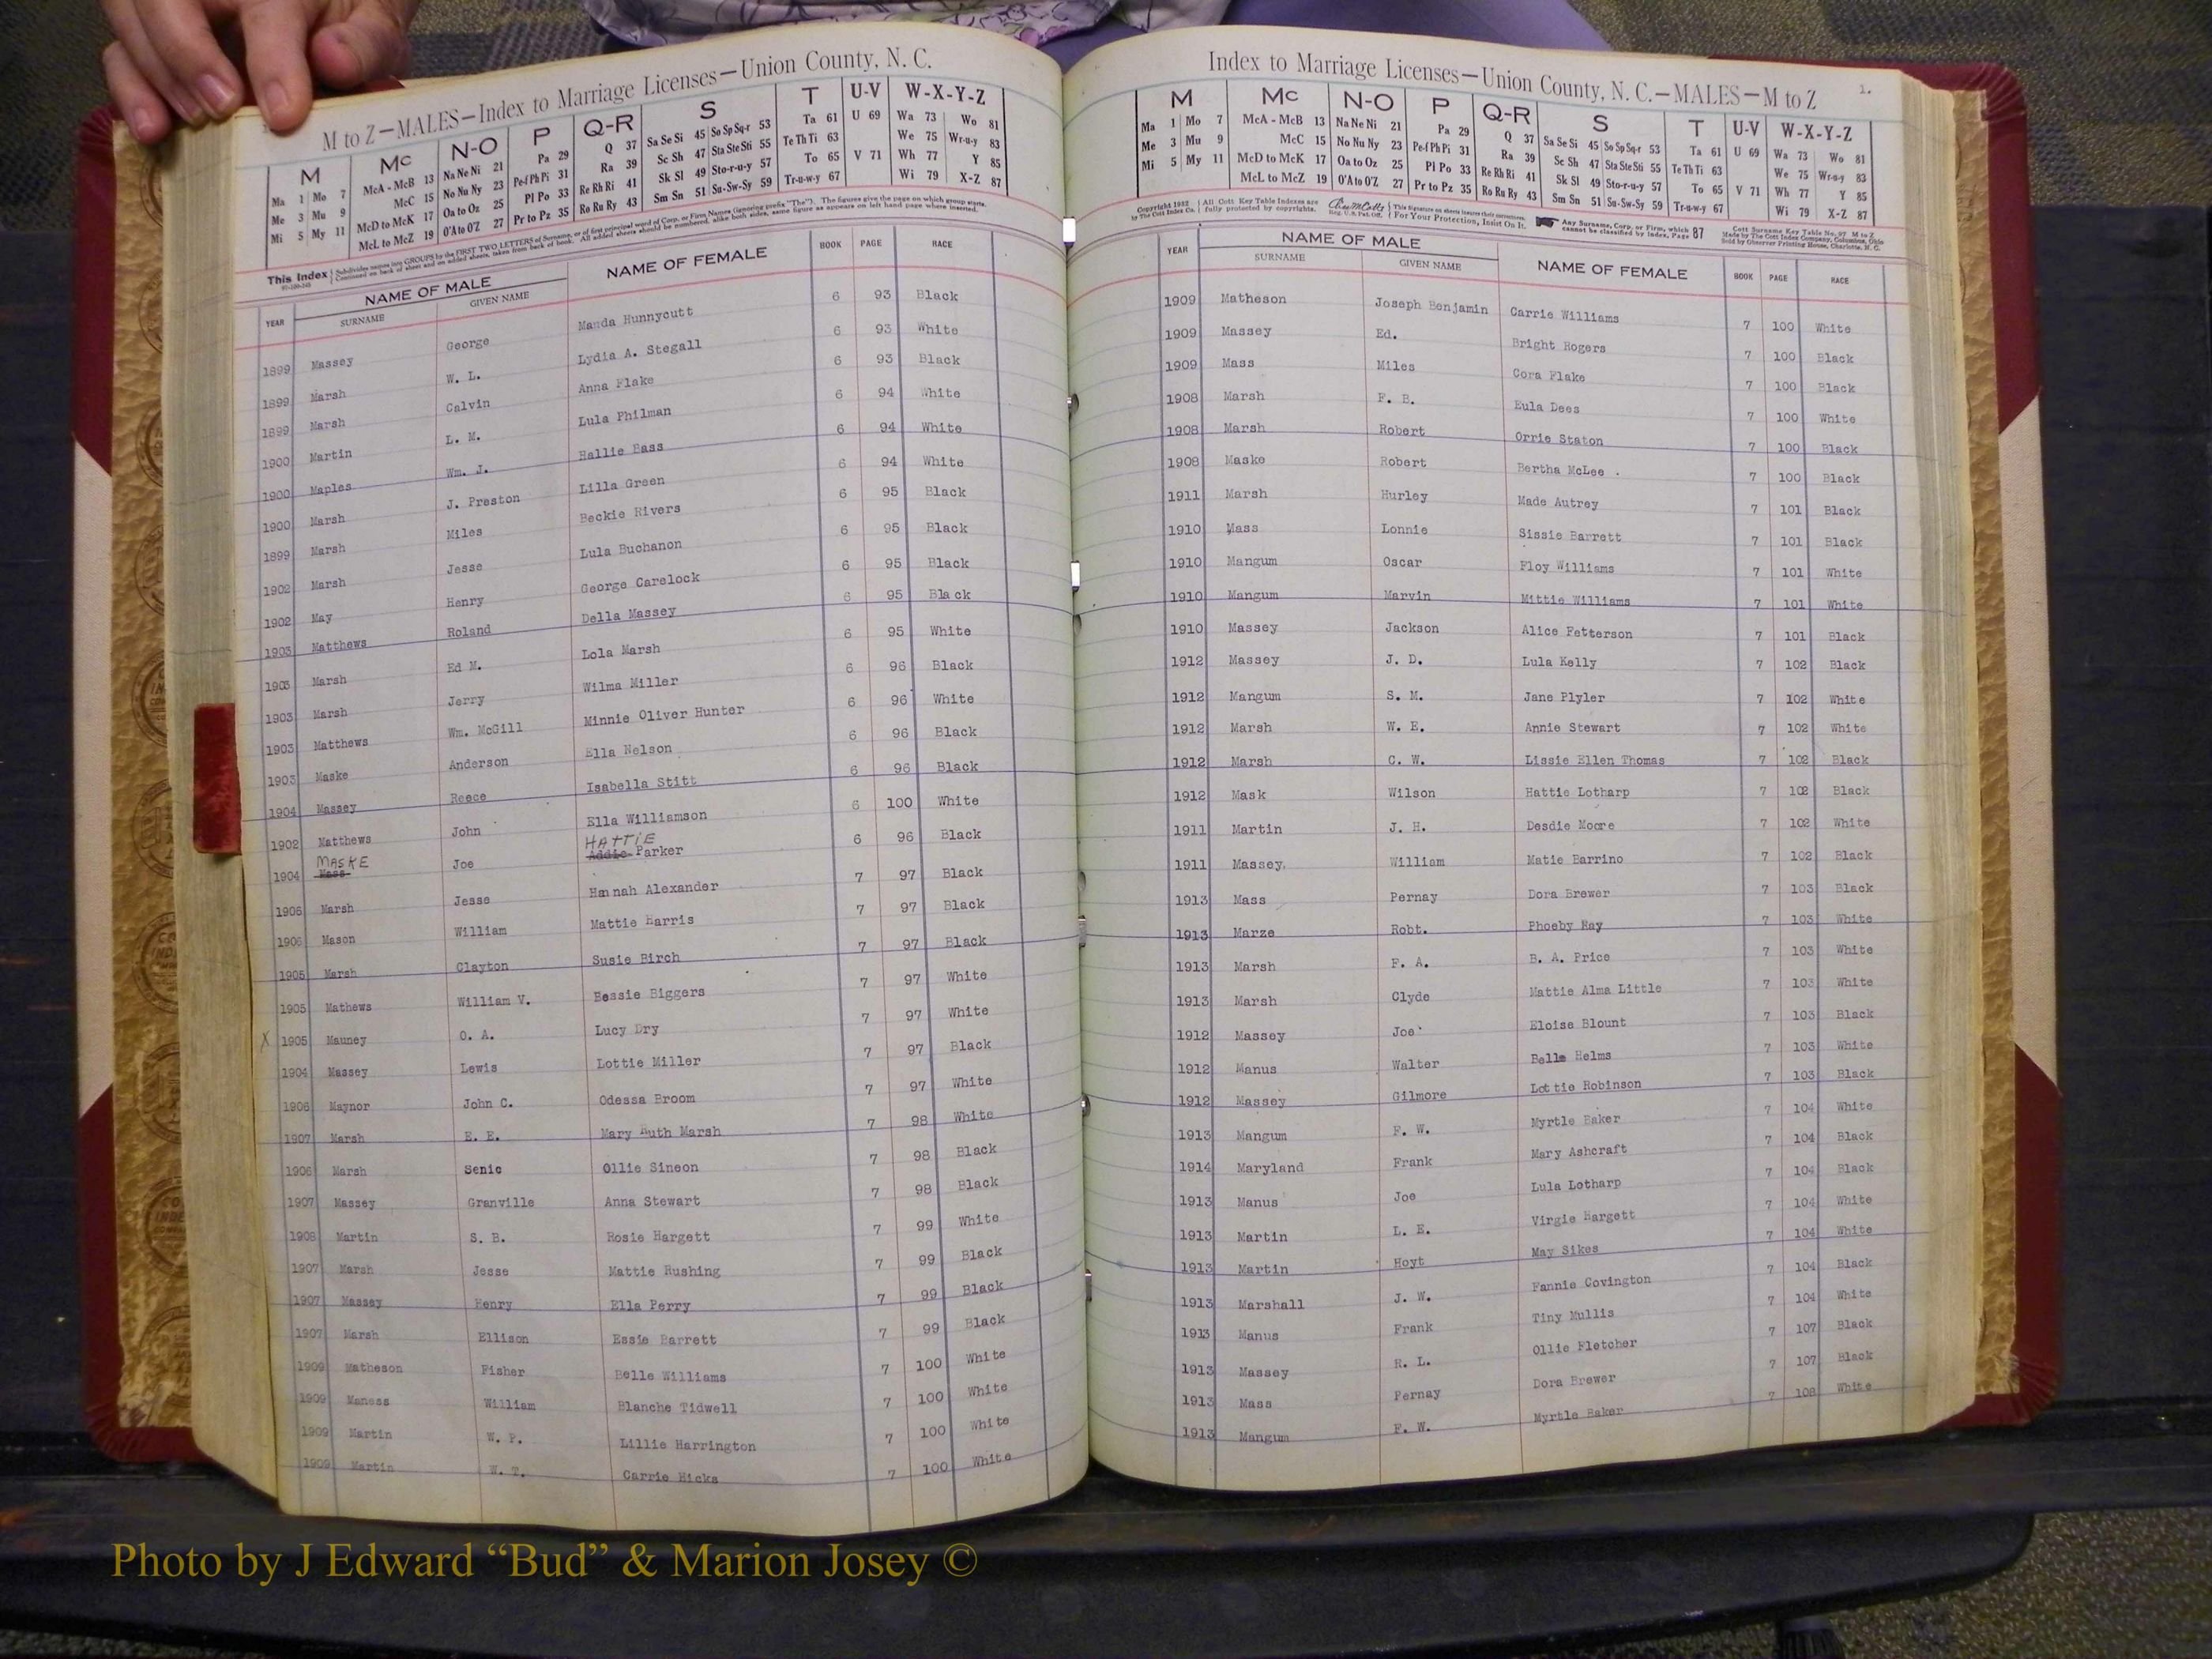 M to Z—MALES—Index to Marriage Licenses—Union County, N. C.
M Mc N-O P Q-R S T U-V W-X-Y-Z
Ma 1 Mo 7 McA - McB 13 Na Ne Ni 21 Pa 29 Q 37 Sa Se Si 45 So Sp Sq-r 53 Ta 61 U 69 Wa 73 Wo 81
Me 3 Mu 9 McC 15 No Nu Ny 23 Pe-f Ph Pi 31 Ra 39 Sc Sh 47 Sta Ste Sti 55 Te Th Ti 63 We 75 Wr-u-y 83
Mi 5 My 11 McD to McK 17 Oa to Oz 25 Pl Po 33 Re Rh Ri 41 Sk Sl 49 Sto-r-u-y 57 To 65 V 71 Wh 77 Y 85
McL to McZ 19 O'A to O'Z 27 Pr to Pz 35 Ro Ru Ry 43 Sm Sn 51 Su-Sw-Sy 59 Tr-u-w-y 67 Wi 79 X-Z 87
This Index Subdivides names into GROUPS by the FIRST TWO LETTERS of Surname, or of first principal word of Corp. or Firm Names (ignoring prefix "The"). The figures give the page on which group starts.
Continued on back of sheet and on added sheets, taken from back of book. All added sheets should be numbered, alike both sides, same figure as appears on left hand page where inserted.
YEAR NAME OF MALE SURNAME GIVEN NAME NAME OF FEMALE BOOK PAGE RACE
1899 Massey George Manda Hunnycutt 6 93 Black
1899 Marsh W. L. Lydia A. Stegall 6 93 White
1899 Marsh Calvin Anna Flake 6 93 Black
1900 Martin L. M. Lula Philman 6 94 White
1900 Maples Wm. J. Hallie Bass 6 94 White
1900 Marsh J. Preston Lilla Green 6 94 White
1899 Marsh Miles Beckie Rivers 6 95 Black
1902 Marsh Jesse Lula Buchanon 6 95 Black
1902 May Henry George Carelock 6 95 Black
1903 Matthews Roland Della Massey 6 95 Black
1903 Marsh Ed M. Lola Marsh 6 95 White
1903 Marsh Jerry Wilma Miller 6 96 Black
1903 Matthews Wm. McGill Minnie Oliver Hunter 6 96 White
1903 Maske Anderson Ella Nelson 6 96 Black
1904 Massey Reece Isabella Stitt 6 96 Black
1902 Matthews John Ella Williamson 6 100 White
MASKE HATTIE
1904 Mass Joe Addie Parker 6 96 Black
1906 Marsh Jesse Hannah Alexander 7 97 Black
1906 Mason William Mattie Harris 7 97 Black
1905 Marsh Clayton Susie Birch 7 97 Black
1905 Mathews William V. Bessie Biggers 7 97 White
X 1905 Mauney O. A. Lucy Dry 7 97 White
1904 Massey Lewis Lottie Miller 7 97 Black
1906 Maynor John C. Odessa Broom 7 97 White
1907 Marsh E. E. Mary Ruth Marsh 7 98 White
1906 Marsh Senic Ollie Sineon 7 98 Black
1907 Massey Granville Anna Stewart 7 98 Black
1908 Martin S. B. Rosie Hargett 7 99 White
1907 Marsh Jesse Mattie Rushing 7 99 Black
1907 Massey Henry Ella Perry 7 99 Black
1907 Marsh Ellison Essie Barrett 7 99 Black
1909 Matheson Fisher Belle Williams 7 100 White
1909 Maness William Blanche Tidwell 7 100 White
1909 Martin W. P. Lillie Harrington 7 100 White
1909 Martin W. T. Carrie Hicks 7 100 White
Index to Marriage Licenses—Union County, N. C.—MALES—M to Z 1.
M Mc N-O P Q-R S T U-V W-X-Y-Z
Ma 1 Mo 7 McA - McB 13 Na Ne Ni 21 Pa 29 Q 37 Sa Se Si 45 So Sp Sq-r 53 Ta 61 U 69 Wa 73 Wo 81
Me 3 Mu 9 McC 15 No Nu Ny 23 Pe-f Ph Pi 31 Ra 39 Sc Sh 47 Sta Ste Sti 55 Te Th Ti 63 We 75 Wr-u-y 83
Mi 5 My 11 McD to McK 17 Oa to Oz 25 Pl Po 33 Re Rh Ri 41 Sk Sl 49 Sto-r-u-y 57 To 65 V 71 Wh 77 Y 85
McL to McZ 19 O'A to O'Z 27 Pr to Pz 35 Ro Ru Ry 43 Sm Sn 51 Su-Sw-Sy 59 Tr-u-w-y 67 Wi 79 X-Z 87
Copyright 1932 All Cott Key Table Indexes are This signature on sheets insures their correctness. Any Surname, Corp. or Firm, which Cott Surname Key Table No. 97 M to Z
by The Cott Index Co. fully protected by copyrights. Reg. U.S. Pat. Off. For Your Protection, Insist On It. cannot be classified by index, Page 87 Made by The Cott Index Company, Columbus, Ohio
Sold by Observer Printing House, Charlotte, N. C.
YEAR NAME OF MALE SURNAME GIVEN NAME NAME OF FEMALE BOOK PAGE RACE
1909 Matheson Joseph Benjamin Carrie Williams 7 100 White
1909 Massey Ed. Bright Rogers 7 100 Black
1909 Mass Miles Cora Flake 7 100 Black
1908 Marsh F. B. Eula Dees 7 100 White
1908 Marsh Robert Orrie Staton 7 100 Black
1908 Maske Robert Bertha McLee . 7 100 Black
1911 Marsh Hurley Made Autrey 7 101 Black
1910 Mass Lonnie Sissie Barrett 7 101 Black
1910 Mangum Oscar Floy Williams 7 101 White
1910 Mangum Marvin Mittie Williams 7 101 White
1910 Massey Jackson Alice Petterson 7 101 Black
1912 Massey J. D. Lula Kelly 7 102 Black
1912 Mangum S. M. Jane Plyler 7 102 White
1912 Marsh W. E. Annie Stewart 7 102 White
1912 Marsh C. W. Lissie Ellen Thomas 7 102 Black
1912 Mask Wilson Hattie Lotharp 7 102 Black
1911 Martin J. H. Desdie Moore 7 102 White
1911 Massey William Matie Barrino 7 102 Black
1913 Mass Pernay Dora Brewer 7 103 Black
1913 Marze Robt. Phoeby Ray 7 103 White
1913 Marsh F. A. B. A. Price 7 103 White
1913 Marsh Clyde Mattie Alma Little 7 103 White
1912 Massey Joe Eloise Blount 7 103 Black
1912 Manus Walter Belle Helms 7 103 White
1912 Massey Gilmore Lottie Robinson 7 103 Black
1913 Mangum F. W. Myrtle Baker 7 104 White
1914 Maryland Frank Mary Ashcraft 7 104 Black
1913 Manus Joe Lula Lotharp 7 104 Black
1913 Martin L. E. Virgie Hargett 7 104 White
1913 Martin Hoyt May Sikes 7 104 White
1913 Marshall J. W. Fannie Covington 7 104 Black
1913 Manus Frank Tiny Mullis 7 104 White
1913 Massey R. L. Ollie Fletcher 7 107 Black
1913 Mass Pernay Dora Brewer 7 107 Black
1913 Mangum F. W. Myrtle Baker 7 108 White
Photo by J Edward “Bud” & Marion Josey ©